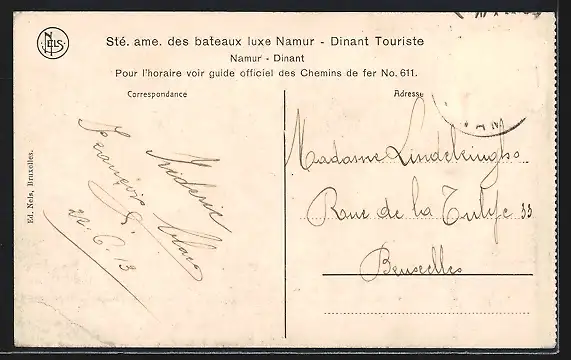 NELS
Sté. ame. des bateaux luxe Namur - Dinant Touriste
Namur - Dinant
Pour l'horaire voir guide officiel des Chemins de fer No. 611.
Correspondance
Adresse
Ed. Nels, Bruxelles.
Frédéric
François
22. 6. 13
Madame
Rue de la Tulipe 33
Bruxelles